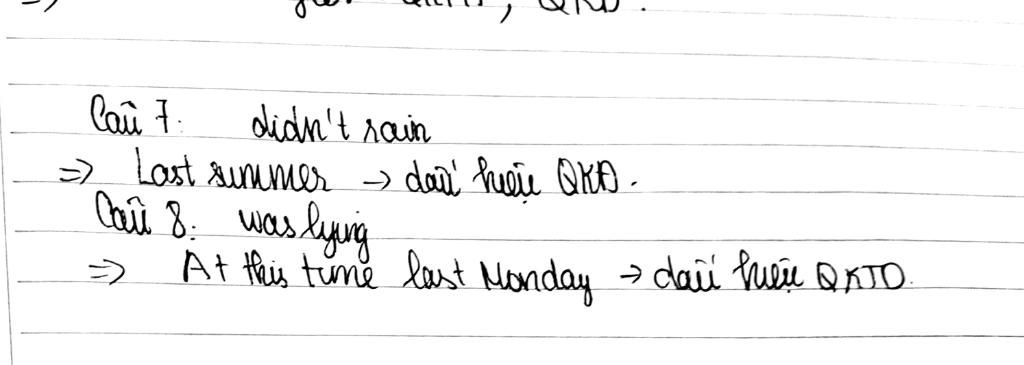 Câu 7: didn't rain
=> Last summer → dấu hiệu QKĐ.
Câu 8: was lying
=> At this time last Monday → dấu hiệu QKTD.